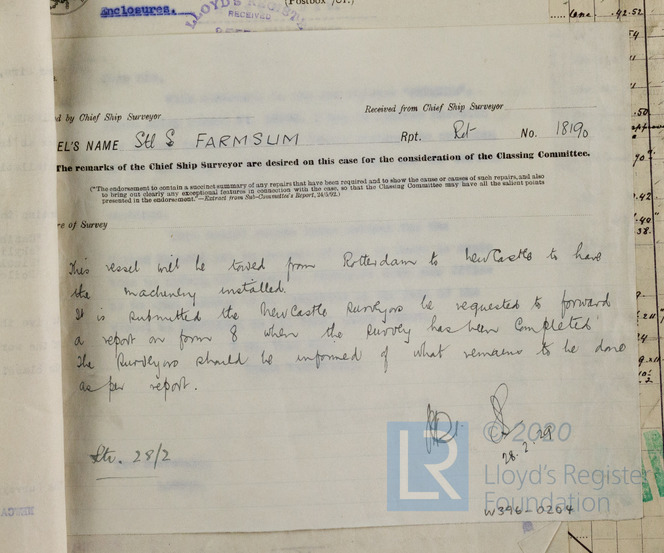 Enclosures.
LLOYD'S REGISTE
RECEIVED
d by Chief Ship Surveyor
Received from Chief Ship Surveyor
EL'S NAME Stl S FARMSUM Rpt. Rot No. 18190
The remarks of the Chief Ship Surveyor are desired on this case for the consideration of the Classing Committee.
("The endorsement to contain a succinct summary of any repairs that have been required and to show the cause or causes of such repairs, and also
to bring out clearly any exceptional features in connection with the case, so that the Classing Committee may have all the salient points
presented in the endorsement."—Extract from Sub-Committee's Report, 24/5/02.)
re of Survey
This vessel will be towed from Rotterdam to Newcastle to have
the machinery installed.
It is submitted the Newcastle Surveyors be requested to forward
a report on form 8 when the survey has been completed
The Surveyors should be informed of what remains to be done
as per report.
28.2.29
Ltr. 28/2
LR
© 2020
Lloyd's Register
Foundation
W396-0204